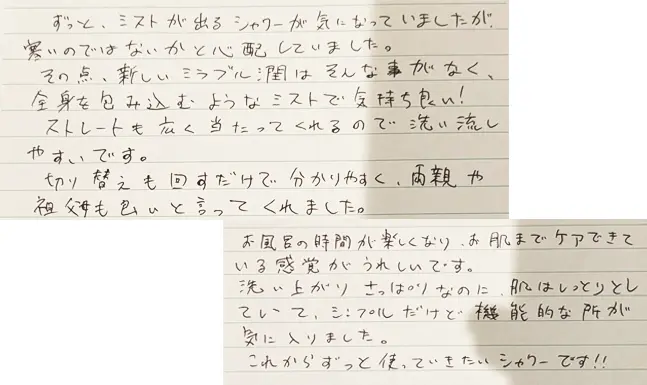 ずっと、ミストが出るシャワーが気になっていましたが、
寒いのではないかと心配していました。
その点、新しいミラブル潤はそんな事がなく、
全身を包み込むようなミストで気持ち良い!
ストレートも広く当たってくれるので洗い流し
やすいです。
切り替えも回すだけで分かりやすく、両親や
祖父母も良いと言ってくれました。
お風呂の時間が楽しくなり、お肌までケアできて
いる感覚がうれしいです。
洗い上がりさっぱりなのに、肌はしっとりとし
ていて、シンプルだけど機能的な所が
気に入りました。
これからずっと使っていきたいシャワーです!!